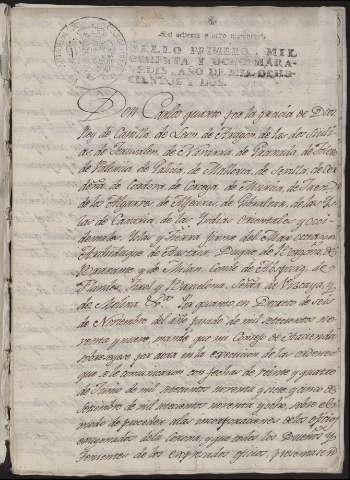 SELLO PRIMERO, MIL
OCHENTA Y OCHO MARA-
VEDIS, AÑO DE MIL OCHO-
CIENTOS Y DOS.
Don Carlos quarto por la gracia de Dios
Rey de Castilla de Leon de Aragon de las dos Sicili
as de Jerusalem de Navarra de Granada, de Toledo
de Valencia de Galicia, de Mallorca, de Sevilla, de Cer
deña de Cordova de Corcega, de Murcia, de Jaen
de los Algarves de Algeciras de Gibraltar, de las Ys
las de Canaria de las Indias orientales y occi
dentales, Yslas y Tierra firme del Mar occeano
Archiduque de Austria, Duque de Borgoña, de
Bravante y de Milan, Conde de Abspurg, de
Flandes, Tirol y Barcelona, Señor de Vizcaya, y
de Molina &c. Por quanto en Decreto de seis
de Noviembre del año pasado de mil setecientos no
venta y nueve mandé que mi Consejo de Hacienda
en la execucion de las ordenes
que se le comunicaron con fechas de veinte y quatro
de Junio de mil setecientos noventa y siete y cinco de
Setiembre de mil setecientos noventa y ocho, sobre el mo
do de proceder a las incorporaciones de los oficios
enagenados de la Corona, y que todos los Dueños y
Tenientes de los expresados oficios presentasen